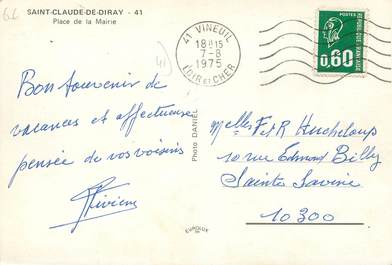 SAINT-CLAUDE-DE-DIRAY - 41
Place de la Mairie
41 VINEUIL
18H15
7-8
1975
LOIR ET CHER
POSTES
REPUBLIQUE FRANÇAISE
0,60
Bon souvenir de
vacances et affectueuse
pensée de vos voisins
Photo DANIEL
EUROLUX
Melles F et R Hucheloup
10 rue Edmond Billy
Sainte Savine
10300